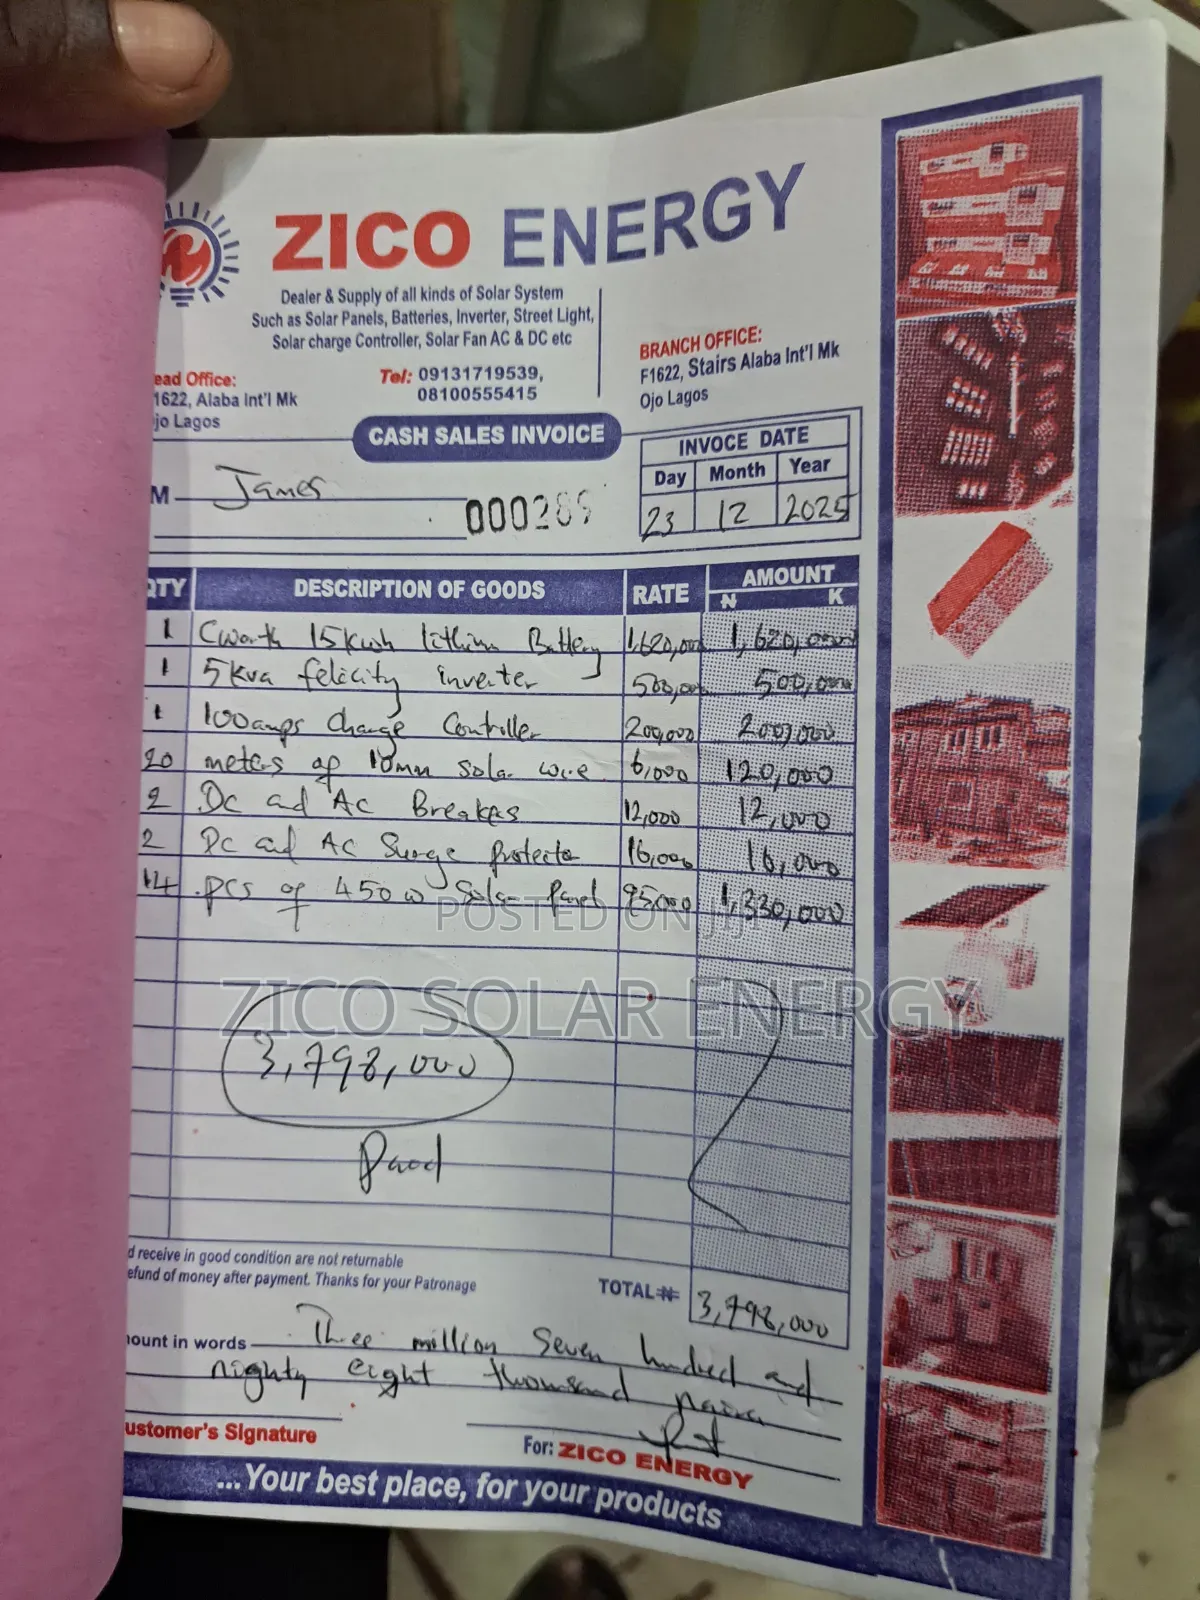 ZICO ENERGY
Dealer & Supply of all kinds of Solar System
Such as Solar Panels, Batteries, Inverter, Street Light,
Solar charge Controller, Solar Fan AC & DC etc
ead Office:
1622, Alaba Int'l Mk
jo Lagos
Tel: 09131719539,
08100555415
BRANCH OFFICE:
F1622, Stairs Alaba Int'l Mk
Ojo Lagos
CASH SALES INVOICE
INVOCE DATE
Day Month Year
23 12 2025
M James
000289
QTY DESCRIPTION OF GOODS RATE AMOUNT
₦ K
1 Cworth 15kwh lithium Battery 1,620,000 1,620,000
1 5kva felicity inverter 500,000 500,000
1 100amps Charge Controller 200,000 200,000
20 meters of 10mm solar wire 6,000 120,000
2 Dc and Ac Breakers 12,000 12,000
2 Dc and AC Surge protector 16,000 16,000
14 pcs of 450w Solar Panel 95000 1,330,000
POSTED ON JIJI
ZICO SOLAR ENERGY
3,798,000
Paid
d receive in good condition are not returnable
efund of money after payment. Thanks for your Patronage
TOTAL ₦ 3,798,000
mount in words Three million Seven hundred and
nighty eight thousand naira
ustomer's Signature
For: ZICO ENERGY
...Your best place, for your products